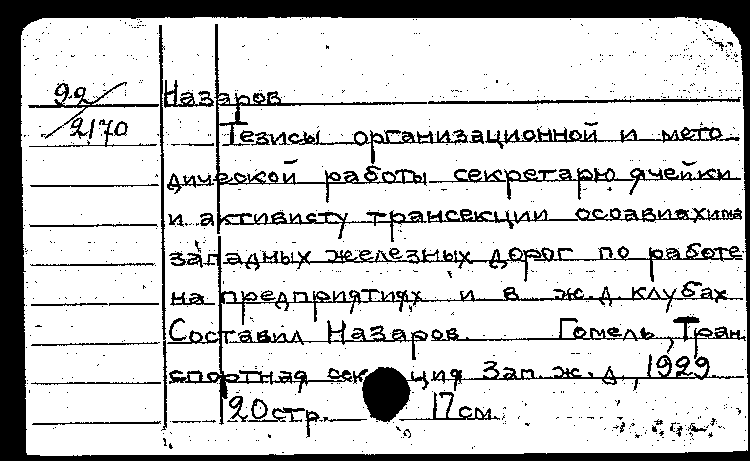 92/2170
Назаров
Тезисы организационной и мето-
дической работы секретарю ячейки
и активисту трансекции осоавиахима
западных железных дорог по работе
на предприятиях и в ж.д. клубах
Составил Назаров. Гомель, Тран
спортная сек ция Зап. ж. д., 1929.
20стр. 17см.